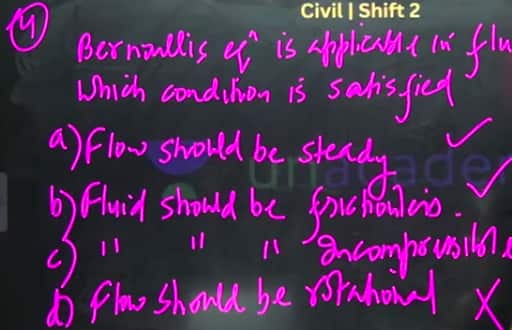 Civil | Shift 2
4) Bernoullis eqn is applicable in flu
which condition is satisfied
a) Flow should be steady
unacader
b) Fluid should be frictionless.
c) " " " Incompressible
d) flow should be rotational X